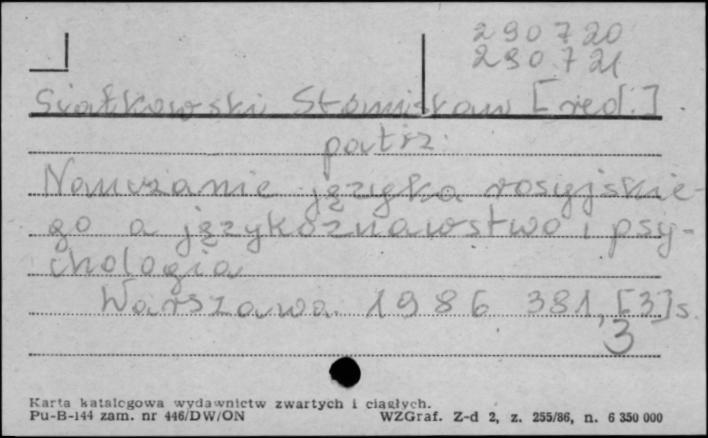 290720
290721
Siatkowski Stanisław [red.]
patrz
Nauczanie języka rosyjskie-
go a językoznawstwo i psy-
chologia
Warszawa 1986 381, [3] s.
3
Karta katalogowa wydawnictw zwartych i ciągłych.
Pu-B-144 zam. nr 446/DW/ON WZGraf. Z-d 2, z. 255/86, n. 6 350 000